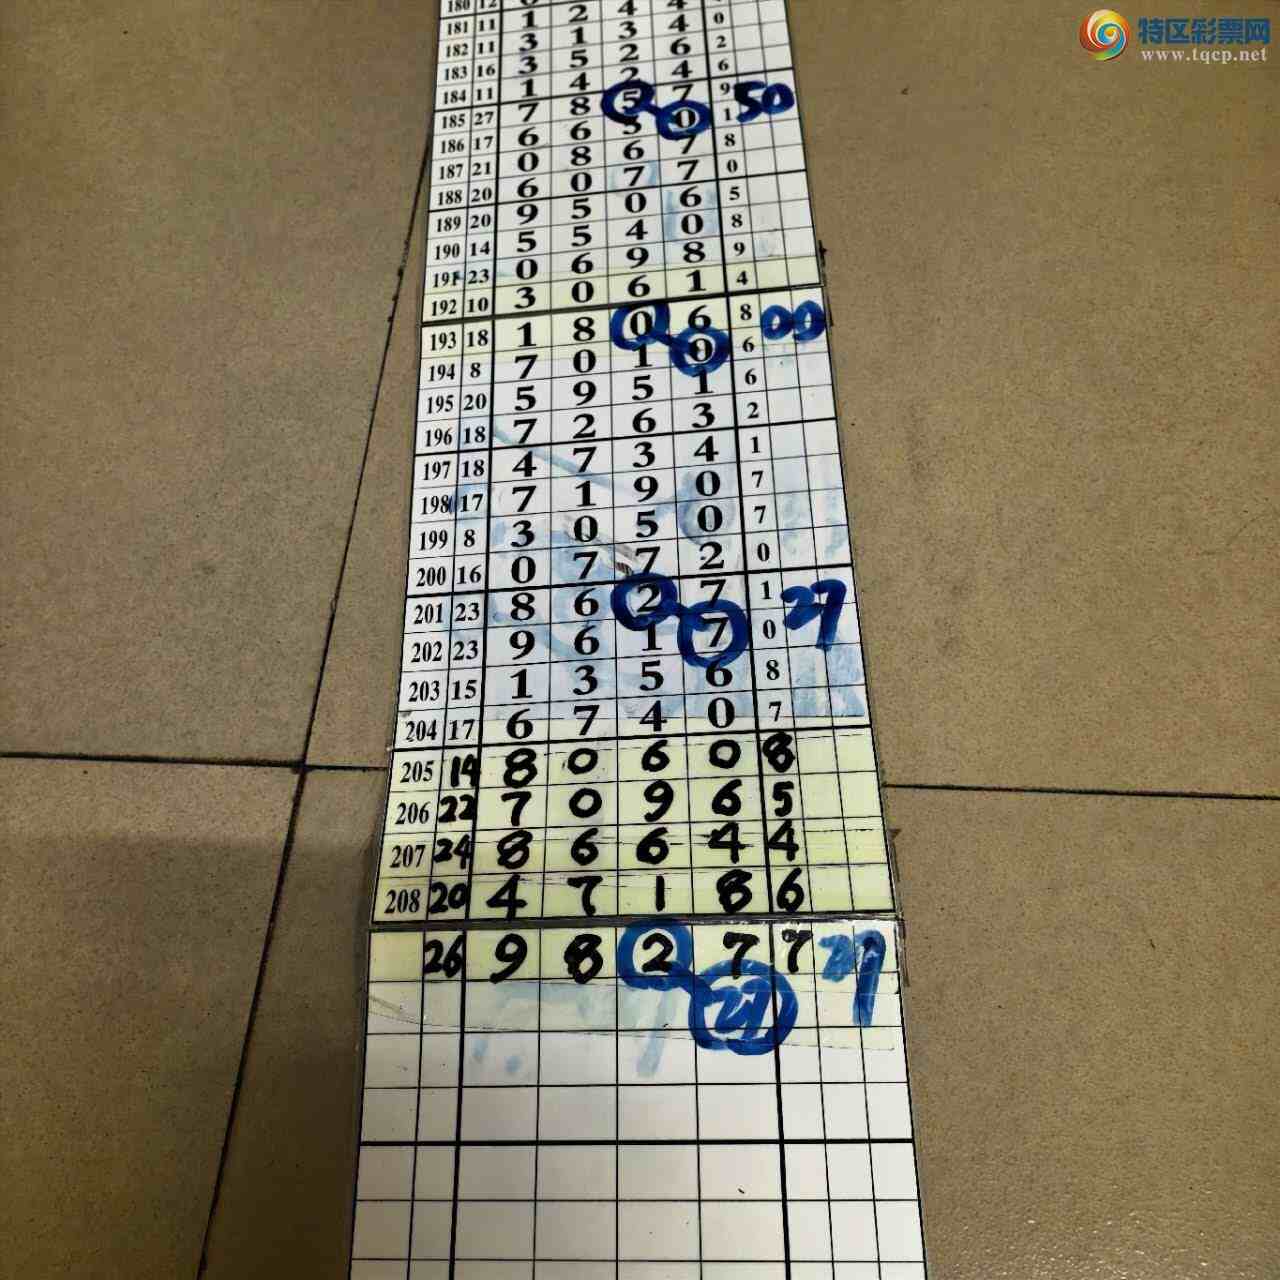 180 12
181 11 1 2 4 4
182 11 3 1 3 4 0
183 16 3 5 2 6 2
184 11 1 4 2 4 6
185 27 7 8 5 7 9 50
186 17 6 6 5 0 1
187 21 0 8 6 7 8
188 20 6 0 7 7 0
189 20 9 5 0 6 5
190 14 5 5 4 0 8
191 23 0 6 9 8 9
192 10 3 0 6 1 4
193 18 1 8 0 6 8 00
194 8 7 0 1 0 6
195 20 5 9 5 1 6
196 18 7 2 6 3 2
197 18 4 7 3 4 1
198 17 7 1 9 0 7
199 8 3 0 5 0 7
200 16 0 7 7 2 0
201 23 8 6 2 7 1 27
202 23 9 6 1 7 0
203 15 1 3 5 6 8
204 17 6 7 4 0 7
205 14 8 0 6 0 8
206 22 7 0 9 6 5
207 24 8 6 6 4 4
208 20 4 7 1 8 6
26 9 8 2 7 7 27
27
特区彩票网
www.tqcp.net